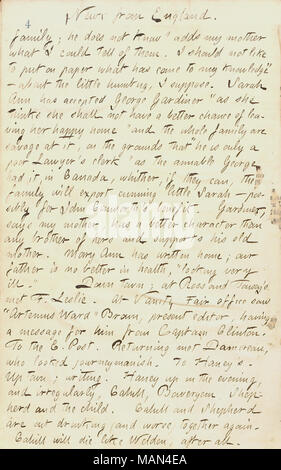 4
News from England.
family; he does not know" adds my mother
what I could tell of them. I should not like
to put on paper what has come to my knowledge"
— about the little bunting, I suppose. Sarah
Ann has accepted George Gardiner "as she
thinks she shall not have a better chance of lea-
ving her happy home" and the whole family are
savage at it, on the grounds that "he is only a
poor Lawyer's clerk" as the amiable George
had it, in Canada, whither, if they can, the
family will export cunning little Sarah — pos-
sibly for John Conworth's profit. Gardner,
says my mother, "has a better character than
any brother of hers and supports his old
mother." Mary Ann has written home; our
father is no better in health, "looking very
ill." Down town; at Ross and Tousey's
met F. Leslie. At Vanity Fair office saw
"Artemus Ward" Brown, present editor, having
a message for him from Captain Clinton.
To the E. Post. Returning met Damoreau,
who looked journeymanish. To Haney's.
Up town; writing. Haney up in the evening,
and irregularly, Cahill, Boweryem Shep-
herd and the child. Cahill and Shepherd
are out drinking, and worse, together again.
Cahill will die like Welden, after all.
alamy
alamy
Image ID: MAN4EA
www.alamy.com